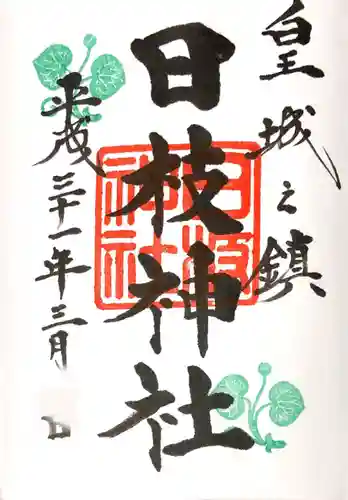 皇城之鎮
日枝神社
平成三十一年三月
日
日枝神社